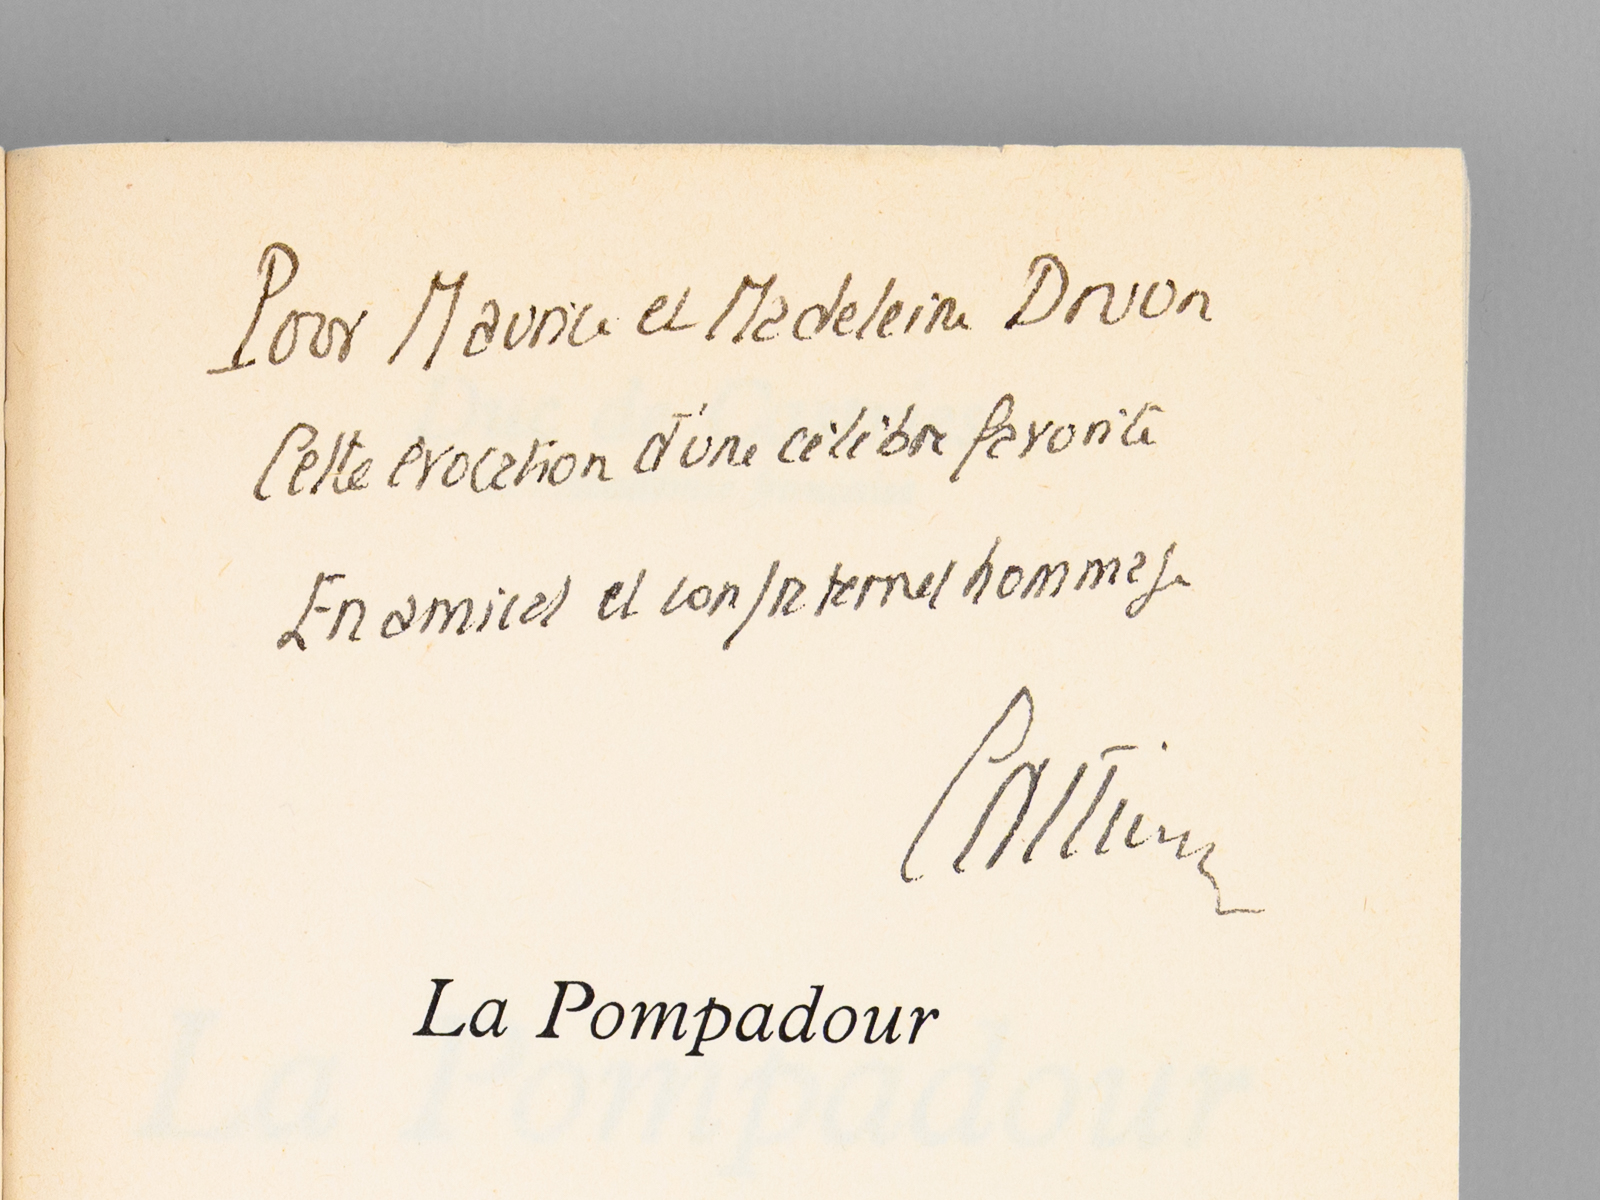 Pour Maurice et Madeleine Druon
Cette évocation d'une célèbre favorite
En amical et confraternel hommage
Castries
La Pompadour